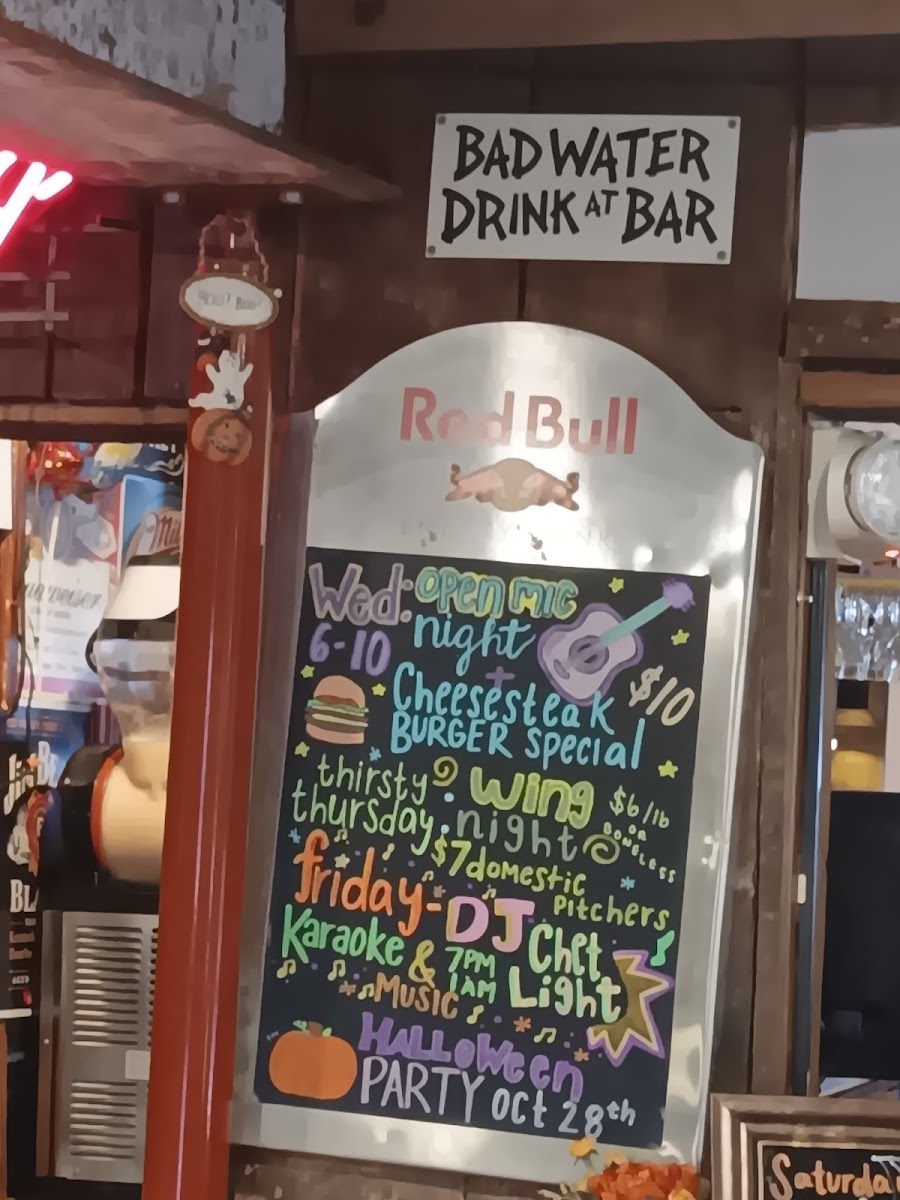 BAD WATER
DRINK AT BAR
Red Bull
Wed: OPEN MIC
6-10 night
+
$10
Cheesesteak
BURGER special
thirsty wing $6/lb
thursday: night
$7 domestic
Pitchers
friday- DJ Chet
Karaoke & 7PM Light
1AM
MUSIC
HALLOWeen
PARTY Oct 28th
Saturda